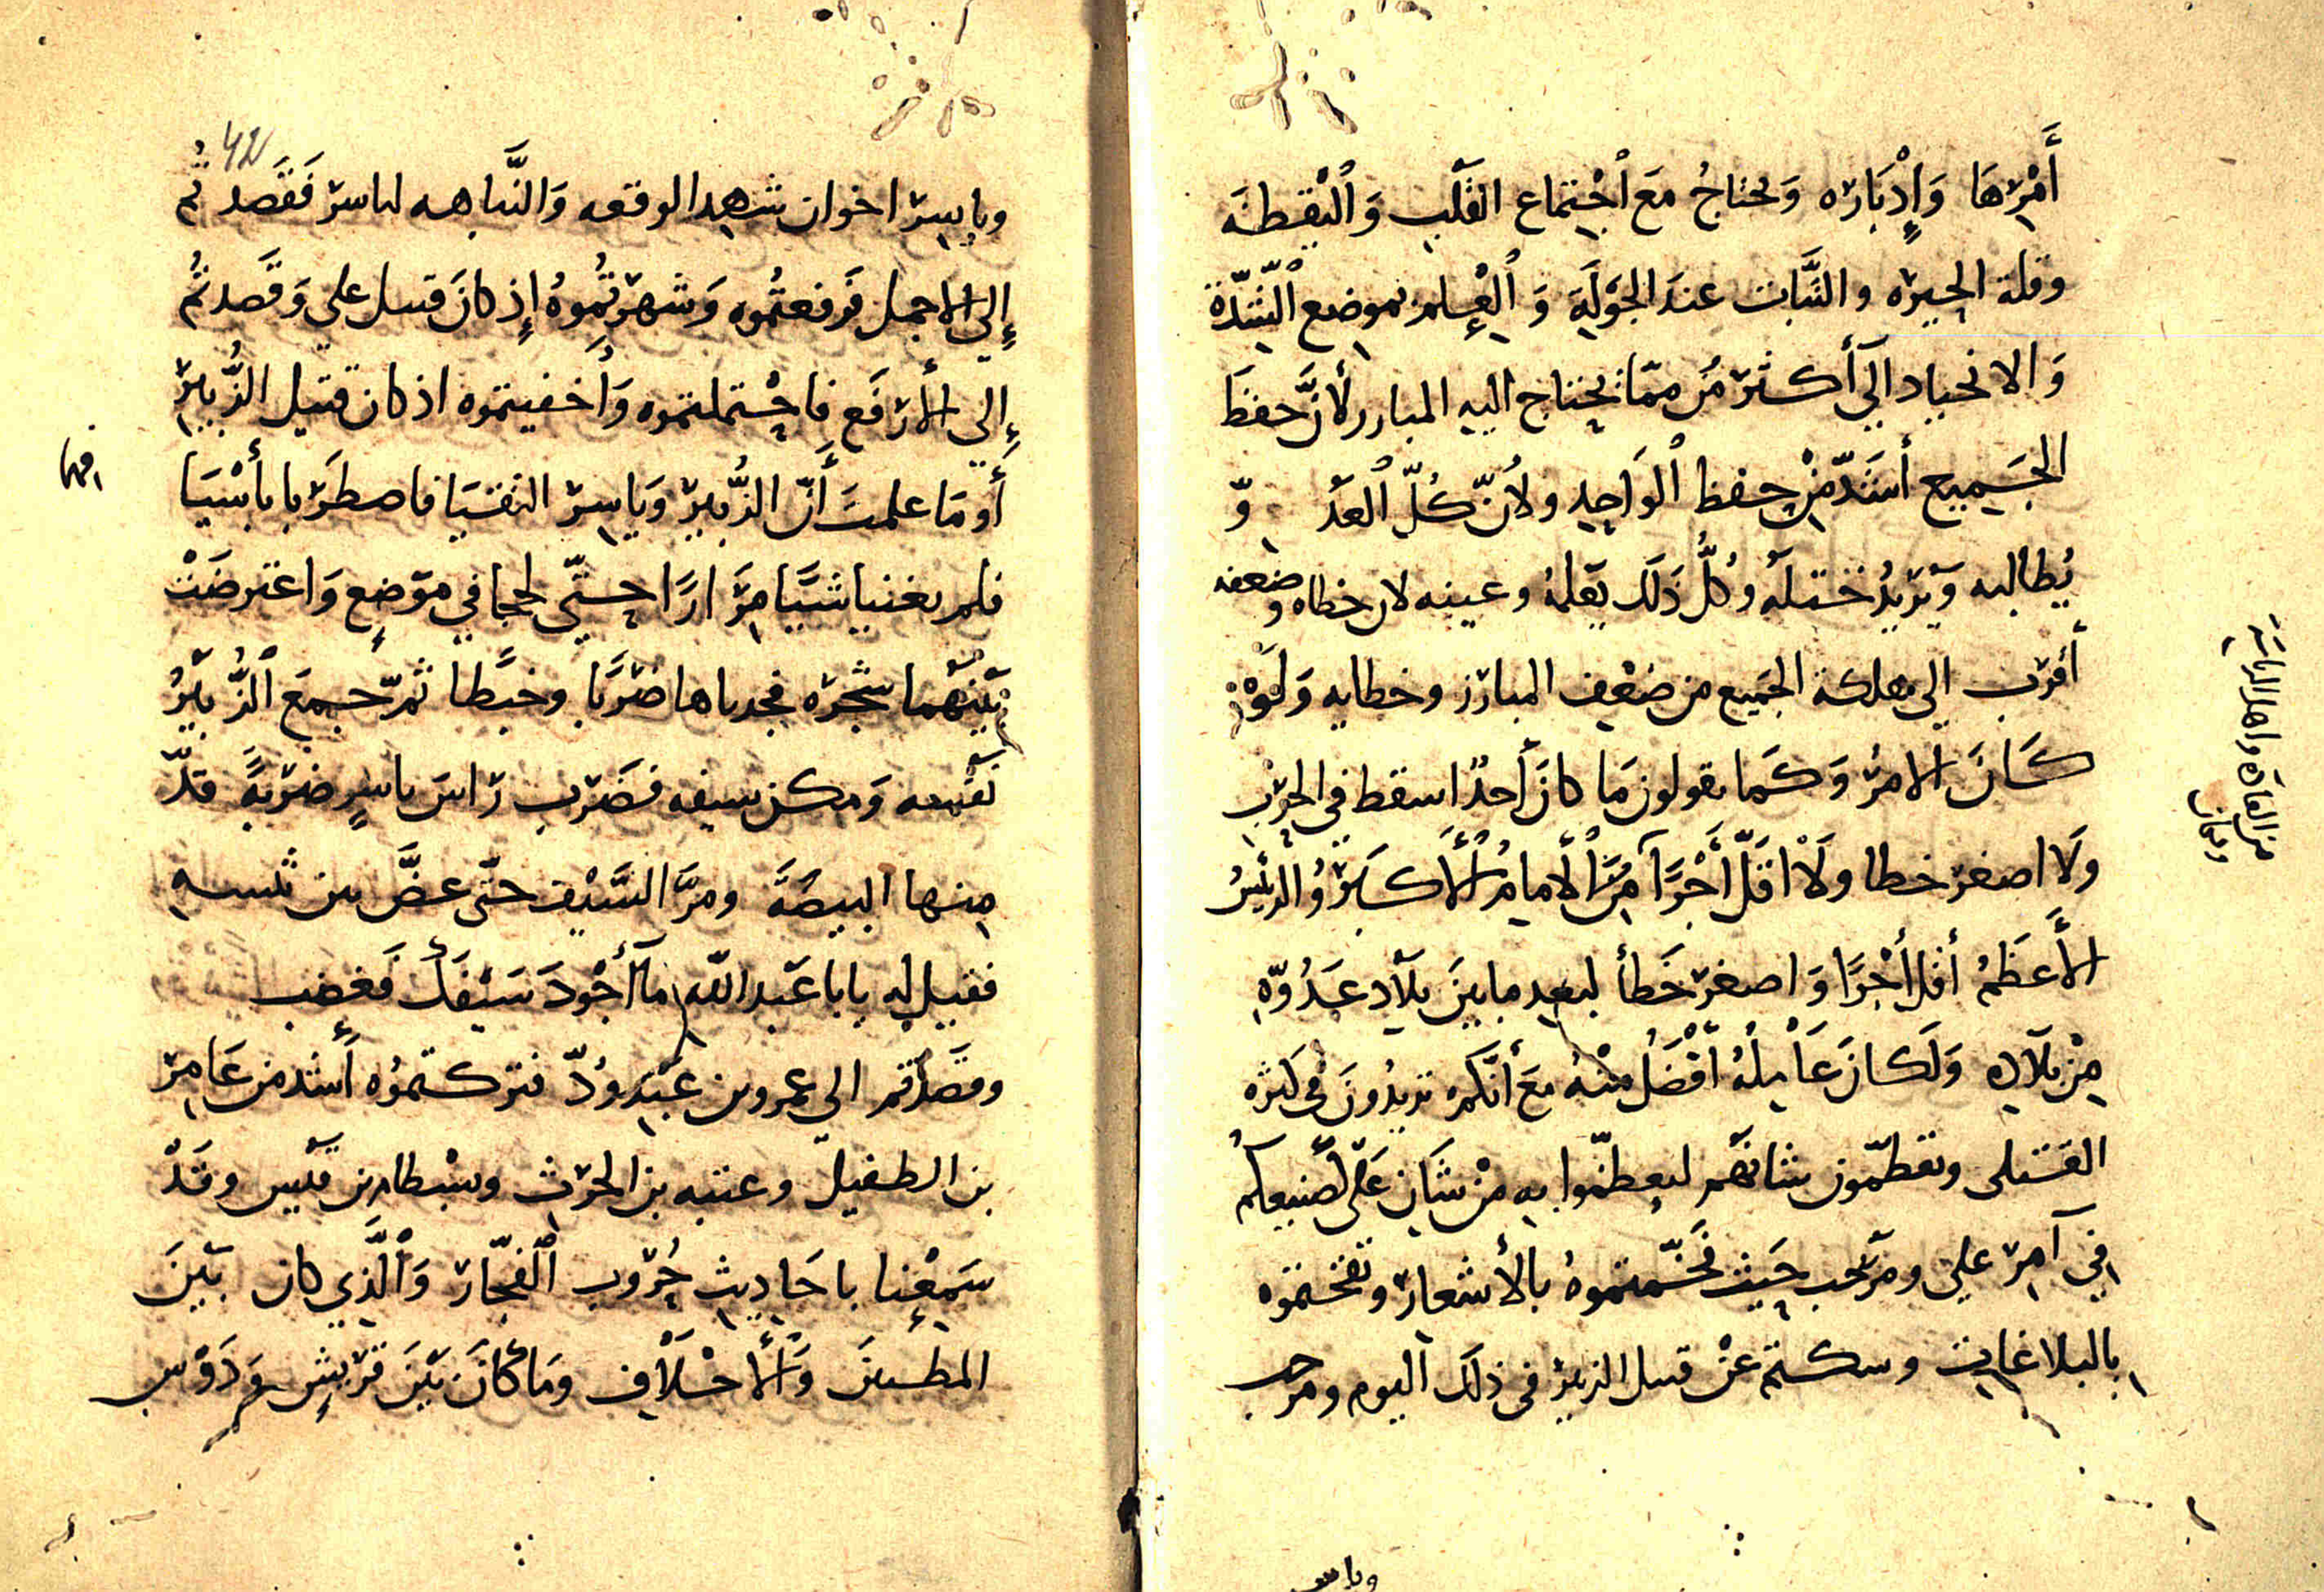 أَمْرِهَا وَإِدْبَارِه وَيحتاجُ مَعَ اجْتِماع القَلْب وَالْيَقِظَه
وقلة الحِيرَه والثَّبات عندَ الجَوْلَةِ وَالْعِلمِ بموضع الشِّدَّة
وَالانحياد الَي أكثر مُن ممّا يحتاج اليهِ المبارز لأنَّ حفظَ
الجَميع أشَدّ مِنْ حِفظ الْواحِدِ ولأنّ كُلّ العَدُ وّ
يُطالبه وَيُرِيدُ ختله وكُلُّ ذَلك يَعْلمُهُ وعينه لان خطاه وضعفه
أقرب إلى هلكة الجَميع من ضعْفِ المبارز وخطايه وَلَوْ
كَانَ الامرُ وَكَما يقولون مَا كانَ أحدٌ اسقط في الحَرْبِ
وَلَا اصغر خطا ولَا اقَلّ أَجْرًا مِنَ الامامُ الأَكبَرُ والرئِيسُ
الأَعظَمُ أقل أجْرًا وَاصغر خَطأ لبعدِ ما بينَ بلَاد عَدُوّهِ
مِنْ بلَادِه وَلَكانَ عَامِلُهُ أفْضَلُ مِنْهُ مَعَ أنَّكم تريدُونَ في كثره
القتلى وتعظّمون شانَهُم ليعظّموا بهِ مِنْ شَان عَلَى لصنيعكُم
في آمِر علي ومَرْحَب حَيث فخّمتموهُ بالأشعار وتفخمتموه
بالبلاغات وسكتم عَنْ قتيل الزبير في ذلك اليوم ومرحب
وياسر
من القادَه واهل الرياسَة
وياسِر اخوان شهِد الوقعه وَالنَّباهه لياسر فَقَصَد تُم
إِلَى الاجمل فرفعتُموه وَشهرْتُموهُ إذ كانَ قتيل علي وَقَصدتُم
إلى الأرفَع فاحتملتموه وَأخفيتموه اذ كان قتيل الزُّبير
أو مَا علمتَ أَنّ الزُّبير وَياسِر التقيَا فاصطَربا بأسْيَا
فهما
فلم يغنيا شيَّا مِرَارًا حتّي لحجا في موَضِعٍ وَاعترضَتْ
بَيْنَهُما شجَره فجدباها ضرْبًا وخبَّطا ثمّ جمعَ الزُّبَيرُ
نَفْسه وَمكن سيفه فضَرب رَاسَ ياسِرٍ ضَرْبَةً قدّ
مِنها البيضَةَ ومرَّ السَّيْف حتّى عضَّ بين
فقيل لِه يابا عَبد اللّه مَا أَجْودَ سَيْفَكَ فَغضب
وقَصَدْتم الى عمرو بن عَبْدِ وُدّ فتركتموُه أشد من عَامِر
بن الطفيل وعتبه بن الحرْث وبسْطام بن قيْس وقَدْ
سَمِعْنا باحَاديثِ حُرُوب الْفجّار وَالَّذِي كان بَيْنَ
المطيبينَ وَالأحْلَافِ ومَا كانَ بَيْنَ قريْشٍ وَدَوْس